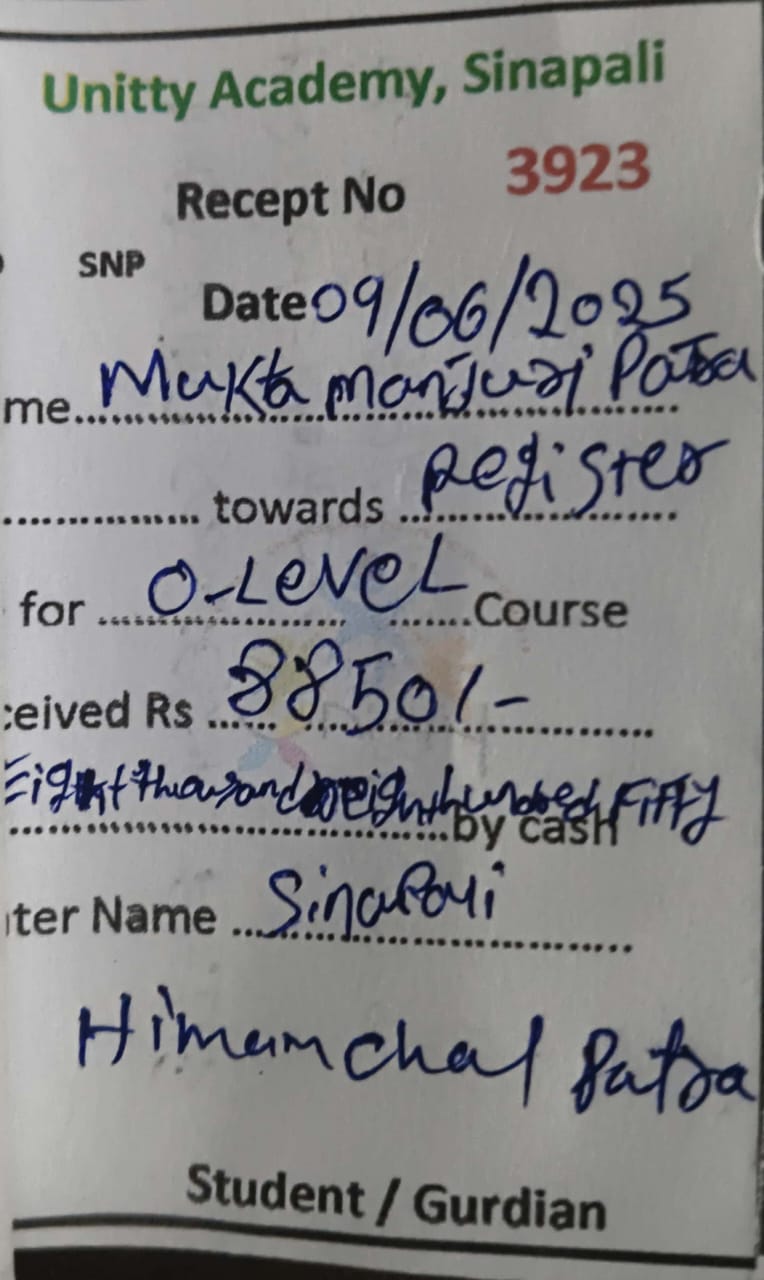 Unitty Academy, Sinapali
Recept No 3923
SNP
Date 09/06/2025
me.......... Mukta manjuri Patra
............... towards ... Register
for ... O-LeveL ... Course
ceived Rs ... 8850/-
Eight thousand eight hundred Fifty
..........by cash
nter Name ... Sinapali
Himamchal Patra
Student / Gurdian